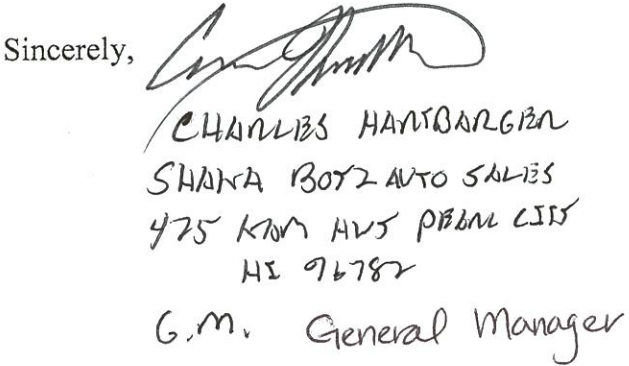 Sincerely,
CHARLES HARTBARGER
SHAKA BOYZ AUTO SALES
475 AVE PEARL CITY
HI 96782
G.M. General Manager